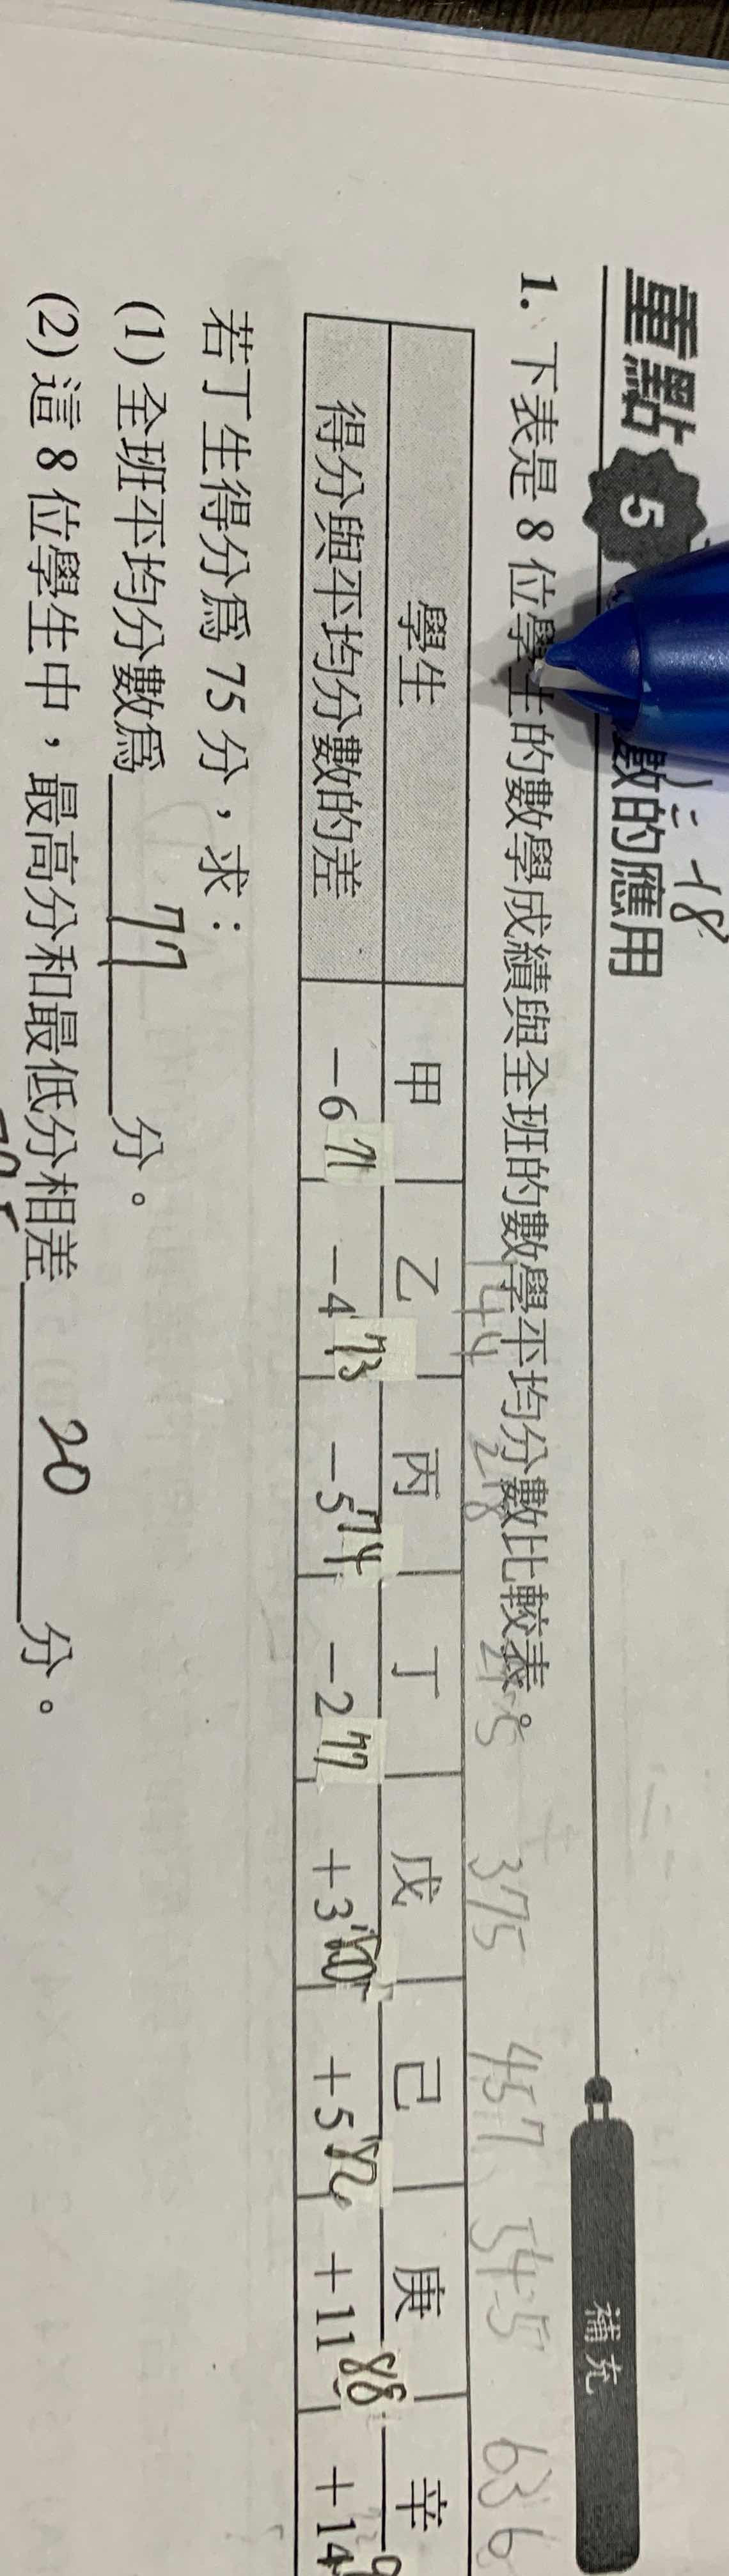 重點 5 數的應用 補充
)=-18
1. 下表是 8 位學生的數學成績與全班的數學平均分數比較表。
144 218 295 375 457 545 636
學生 甲 乙 丙 丁 戊 己 庚 辛
得分與平均分數的差 -6 71 -4 73 -5 74 -2 77 +3 80 +5 82 +11 88 +14
若丁生得分為 75 分,求:
(1) 全班平均分數為 77 分。
(2) 這 8 位學生中,最高分和最低分相差 20 分。